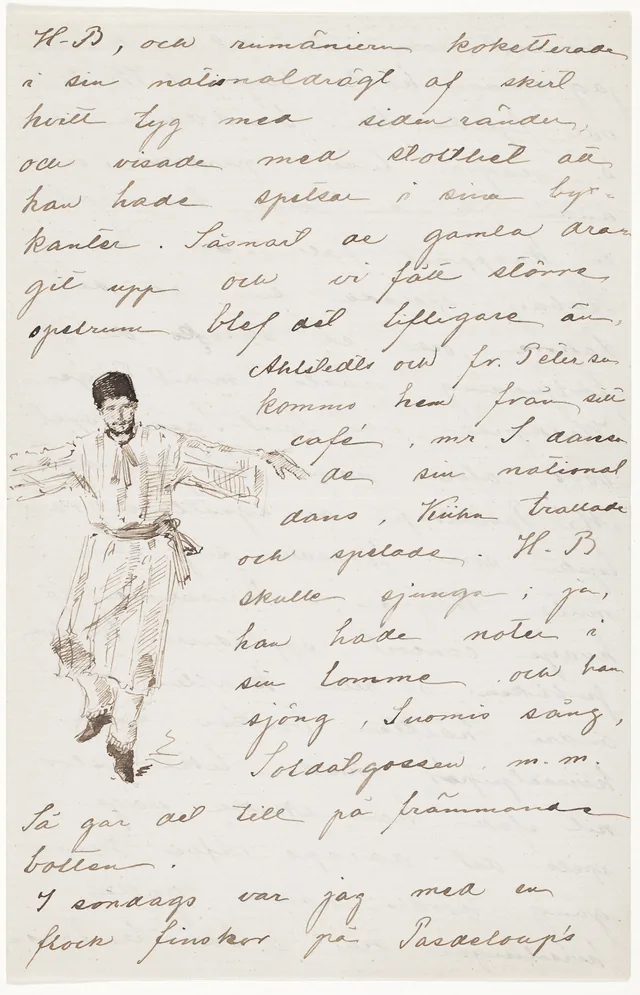 H-B, och rumäniern koketterade
i sin nationaldrägt af skirt
hvitt tyg med siden ränder,
och visade med stolthet att
han hade spetsar i sina byx-
kanter. Såsnart de gamla dra-
git upp och vi fått större
spelrum blef det lifligare än,
Ahlstedts och fr. Petersen
kommo hem från sitt
café, mr S. dansa
de sin national
dans, Kühn trallade
och spelade. H-B
skulle sjunga; ja,
han hade noter i
sin lomme och han
sjöng, Suomis sång,
Soldatgossen m.m.
Så går det till på främmande
botten.
I söndags var jag med en
flock finskor på Pasdeloup's